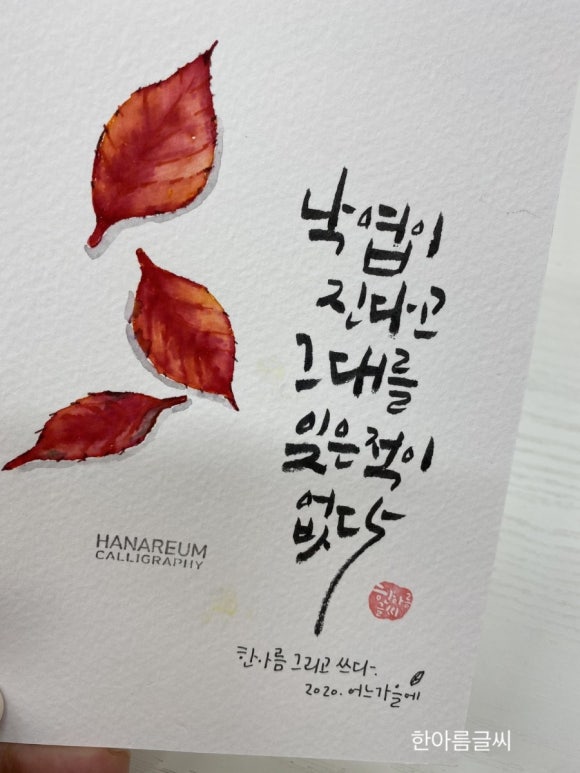 낙엽이
진다고
그대를
잊은 적이
없다
HANAREUM
CALLIGRAPHY
한아름
글씨
한아름 그리고 쓰다.
2020. 어느 가을에
한아름글씨